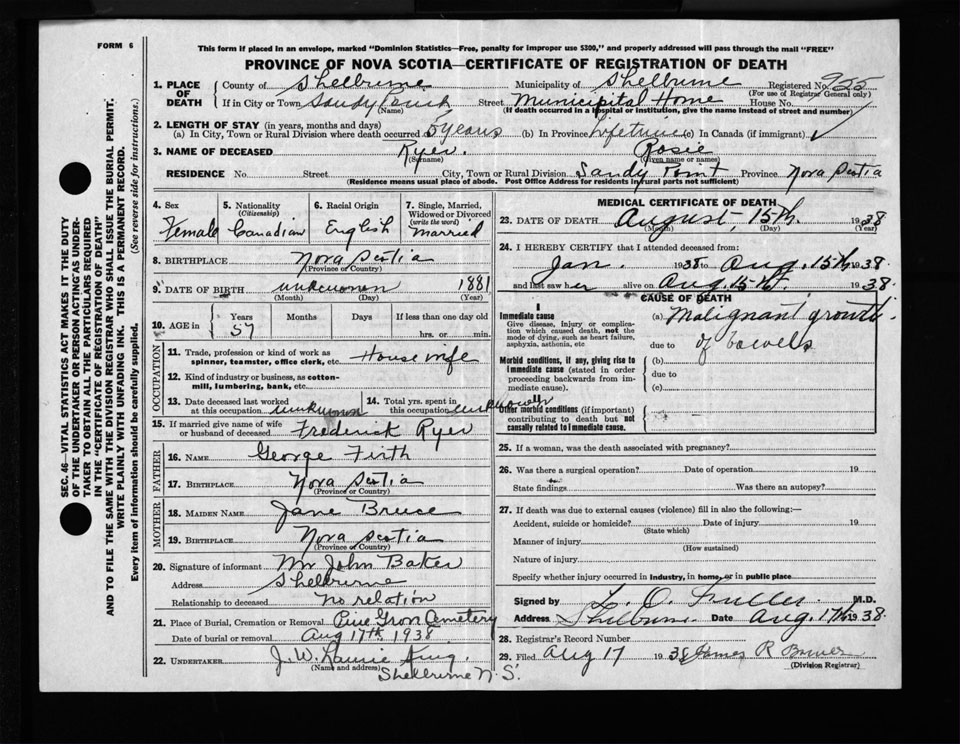 FORM 6
This form if placed in an envelope, marked "Dominion Statistics—Free, penalty for improper use $300," and properly addressed will pass through the mail "FREE"
PROVINCE OF NOVA SCOTIA—CERTIFICATE OF REGISTRATION OF DEATH
1. PLACE OF DEATH County of Shelburne Municipality of Shelburne Registered No. 925
(For use of Registrar General only)
If in City or Town Sandy Point Street Municipital Home House No.
(Name) (If death occurred in a hospital or institution, give the name instead of street and number)
2. LENGTH OF STAY (in years, months and days)
(a) In City, Town or Rural Division where death occurred 5 years (b) In Province lifetime (c) In Canada (if immigrant)
3. NAME OF DECEASED Ryer. Rosie
(Surname) (Given name or names)
RESIDENCE No. Street City, Town or Rural Division Sandy Point Province Nova Scotia
(Residence means usual place of abode. Post Office Address for residents in rural parts not sufficient)
4. Sex 5. Nationality (Citizenship) 6. Racial Origin 7. Single, Married, Widowed or Divorced (write the word)
Female Canadian English Married
8. BIRTHPLACE Nova Scotia
(Province or Country)
9. DATE OF BIRTH unknown 1881
(Month) (Day) (Year)
10. AGE in Years Months Days If less than one day old
57 hrs. or min.
OCCUPATION
11. Trade, profession or kind of work as spinner, teamster, office clerk, etc. Housewife
12. Kind of industry or business, as cotton-mill, lumbering, bank, etc.
13. Date deceased last worked at this occupation unknown 14. Total yrs. spent in this occupation unknown
15. If married give name of wife or husband of deceased Frederick Ryer
FATHER
16. NAME George Firth
17. BIRTHPLACE Nova Scotia
(Province or Country)
MOTHER
18. MAIDEN NAME Jane Bruce
19. BIRTHPLACE Nova Scotia
(Province or Country)
20. Signature of informant Mr John Baker
Address Shelburne
Relationship to deceased no relation
21. Place of Burial, Cremation or Removal Pine Grove Cemetery
Date of burial or removal Aug 17th, 1938
22. UNDERTAKER J. W. Laurie
(Name and address) Shelburne N.S.
MEDICAL CERTIFICATE OF DEATH
23. DATE OF DEATH August, 15th. 1938
(Month) (Day) (Year)
24. I HEREBY CERTIFY that I attended deceased from:
Jan. 1938 to Aug. 15th 1938.
and last saw her alive on Aug. 15th. 1938.
CAUSE OF DEATH
I
Immediate cause (a) Malignant growth
Give disease, injury or complication which caused death, not the mode of dying, such as heart failure, asphyxia, asthenia, etc
due to of bowells
Morbid conditions, if any, giving rise to Immediate cause (stated in order proceeding backwards from immediate cause).
(b)
due to
(c)
II
Other morbid conditions (if important) contributing to death but not causally related to immediate cause.
25. If a woman, was the death associated with pregnancy?
26. Was there a surgical operation? Date of operation 19
State findings no Was there an autopsy?
27. If death was due to external causes (violence) fill in also the following:—
Accident, suicide or homicide? Date of injury 19
(State which)
Manner of injury
(How sustained)
Nature of injury
Specify whether injury occurred in industry, in home, or in public place
Signed by L. O. Fuller M.D.
Address Shelburne Date Aug. 17th 1938.
28. Registrar's Record Number
29. Filed Aug 17 1938 James R Bower
(Division Registrar)
SEC. 46—VITAL STATISTICS ACT MAKES IT THE DUTY
OF THE UNDERTAKER OR PERSON ACTING AS UNDER-
TAKER TO OBTAIN ALL THE PARTICULARS REQUIRED
IN THE "CERTIFICATE OF REGISTRATION OF DEATH"
AND TO FILE THE SAME WITH THE DIVISION REGISTRAR WHO SHALL ISSUE THE BURIAL PERMIT.
WRITE PLAINLY WITH UNFADING INK. THIS IS A PERMANENT RECORD.
Every item of information should be carefully supplied. (See reverse side for instructions.)